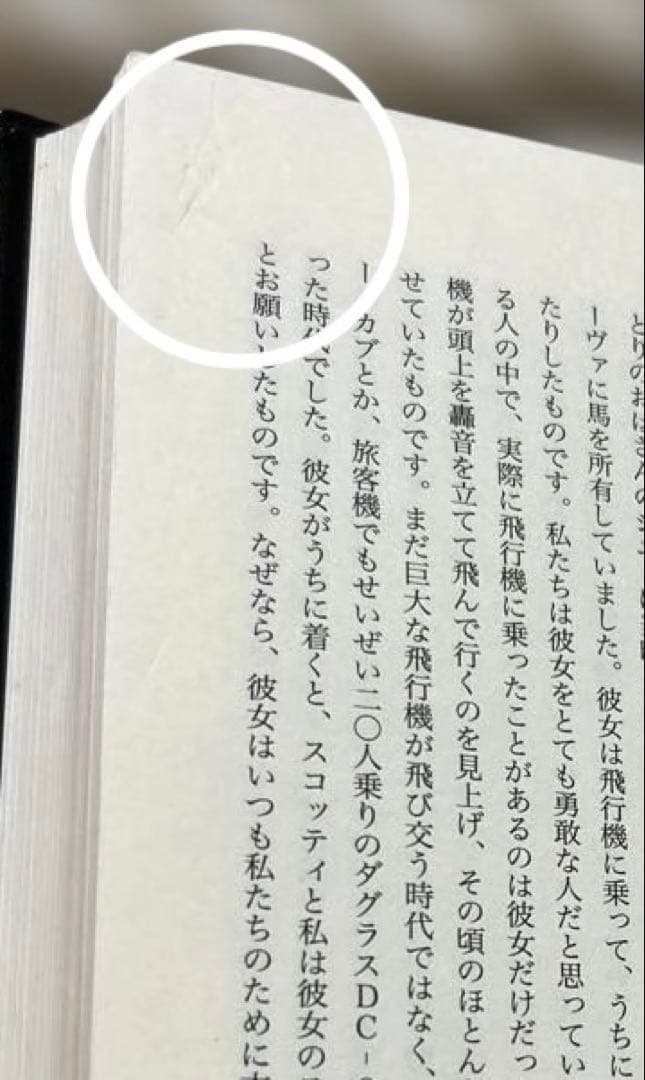 ーヴァに馬を所有していました。彼女は飛行機に乗って、うちに
たりしたものです。私たちは彼女をとても勇敢な人だと思ってい
る人の中で、実際に飛行機に乗ったことがあるのは彼女だけだっ
機が頭上を轟音を立てて飛んで行くのを見上げ、その頃のほとん
せていたものです。まだ巨大な飛行機が飛び交う時代ではなく、
ー・カブとか、旅客機でもせいぜい二〇人乗りのダグラスDC-
った時代でした。彼女がうちに着くと、スコッティと私は彼女の
とお願いしたものです。なぜなら、彼女はいつも私たちのために